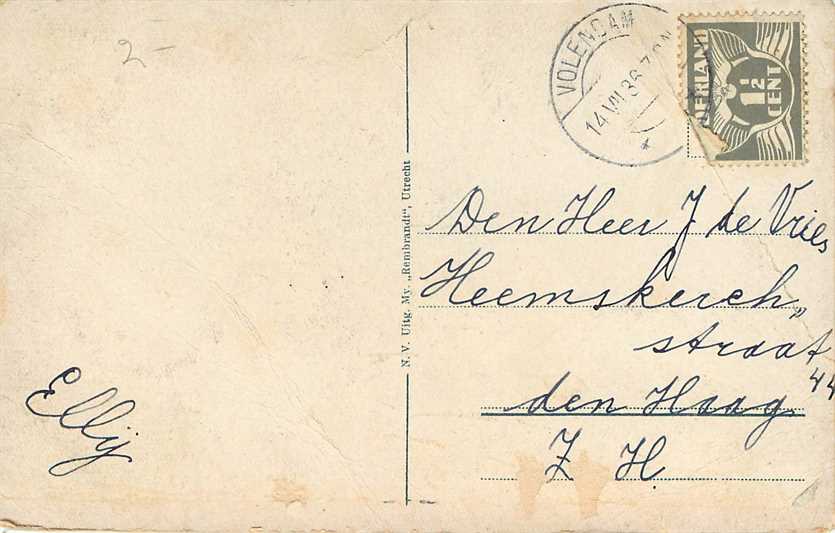 2-
VOLENDAM
14 VII 36
NEDERLAND
1½
CENT
N. V. Uitg. My. „Rembrandt", Utrecht
Den Heer J de Vries
Heemskerch„
straat
44
den Haag.
Z H.
Ellij